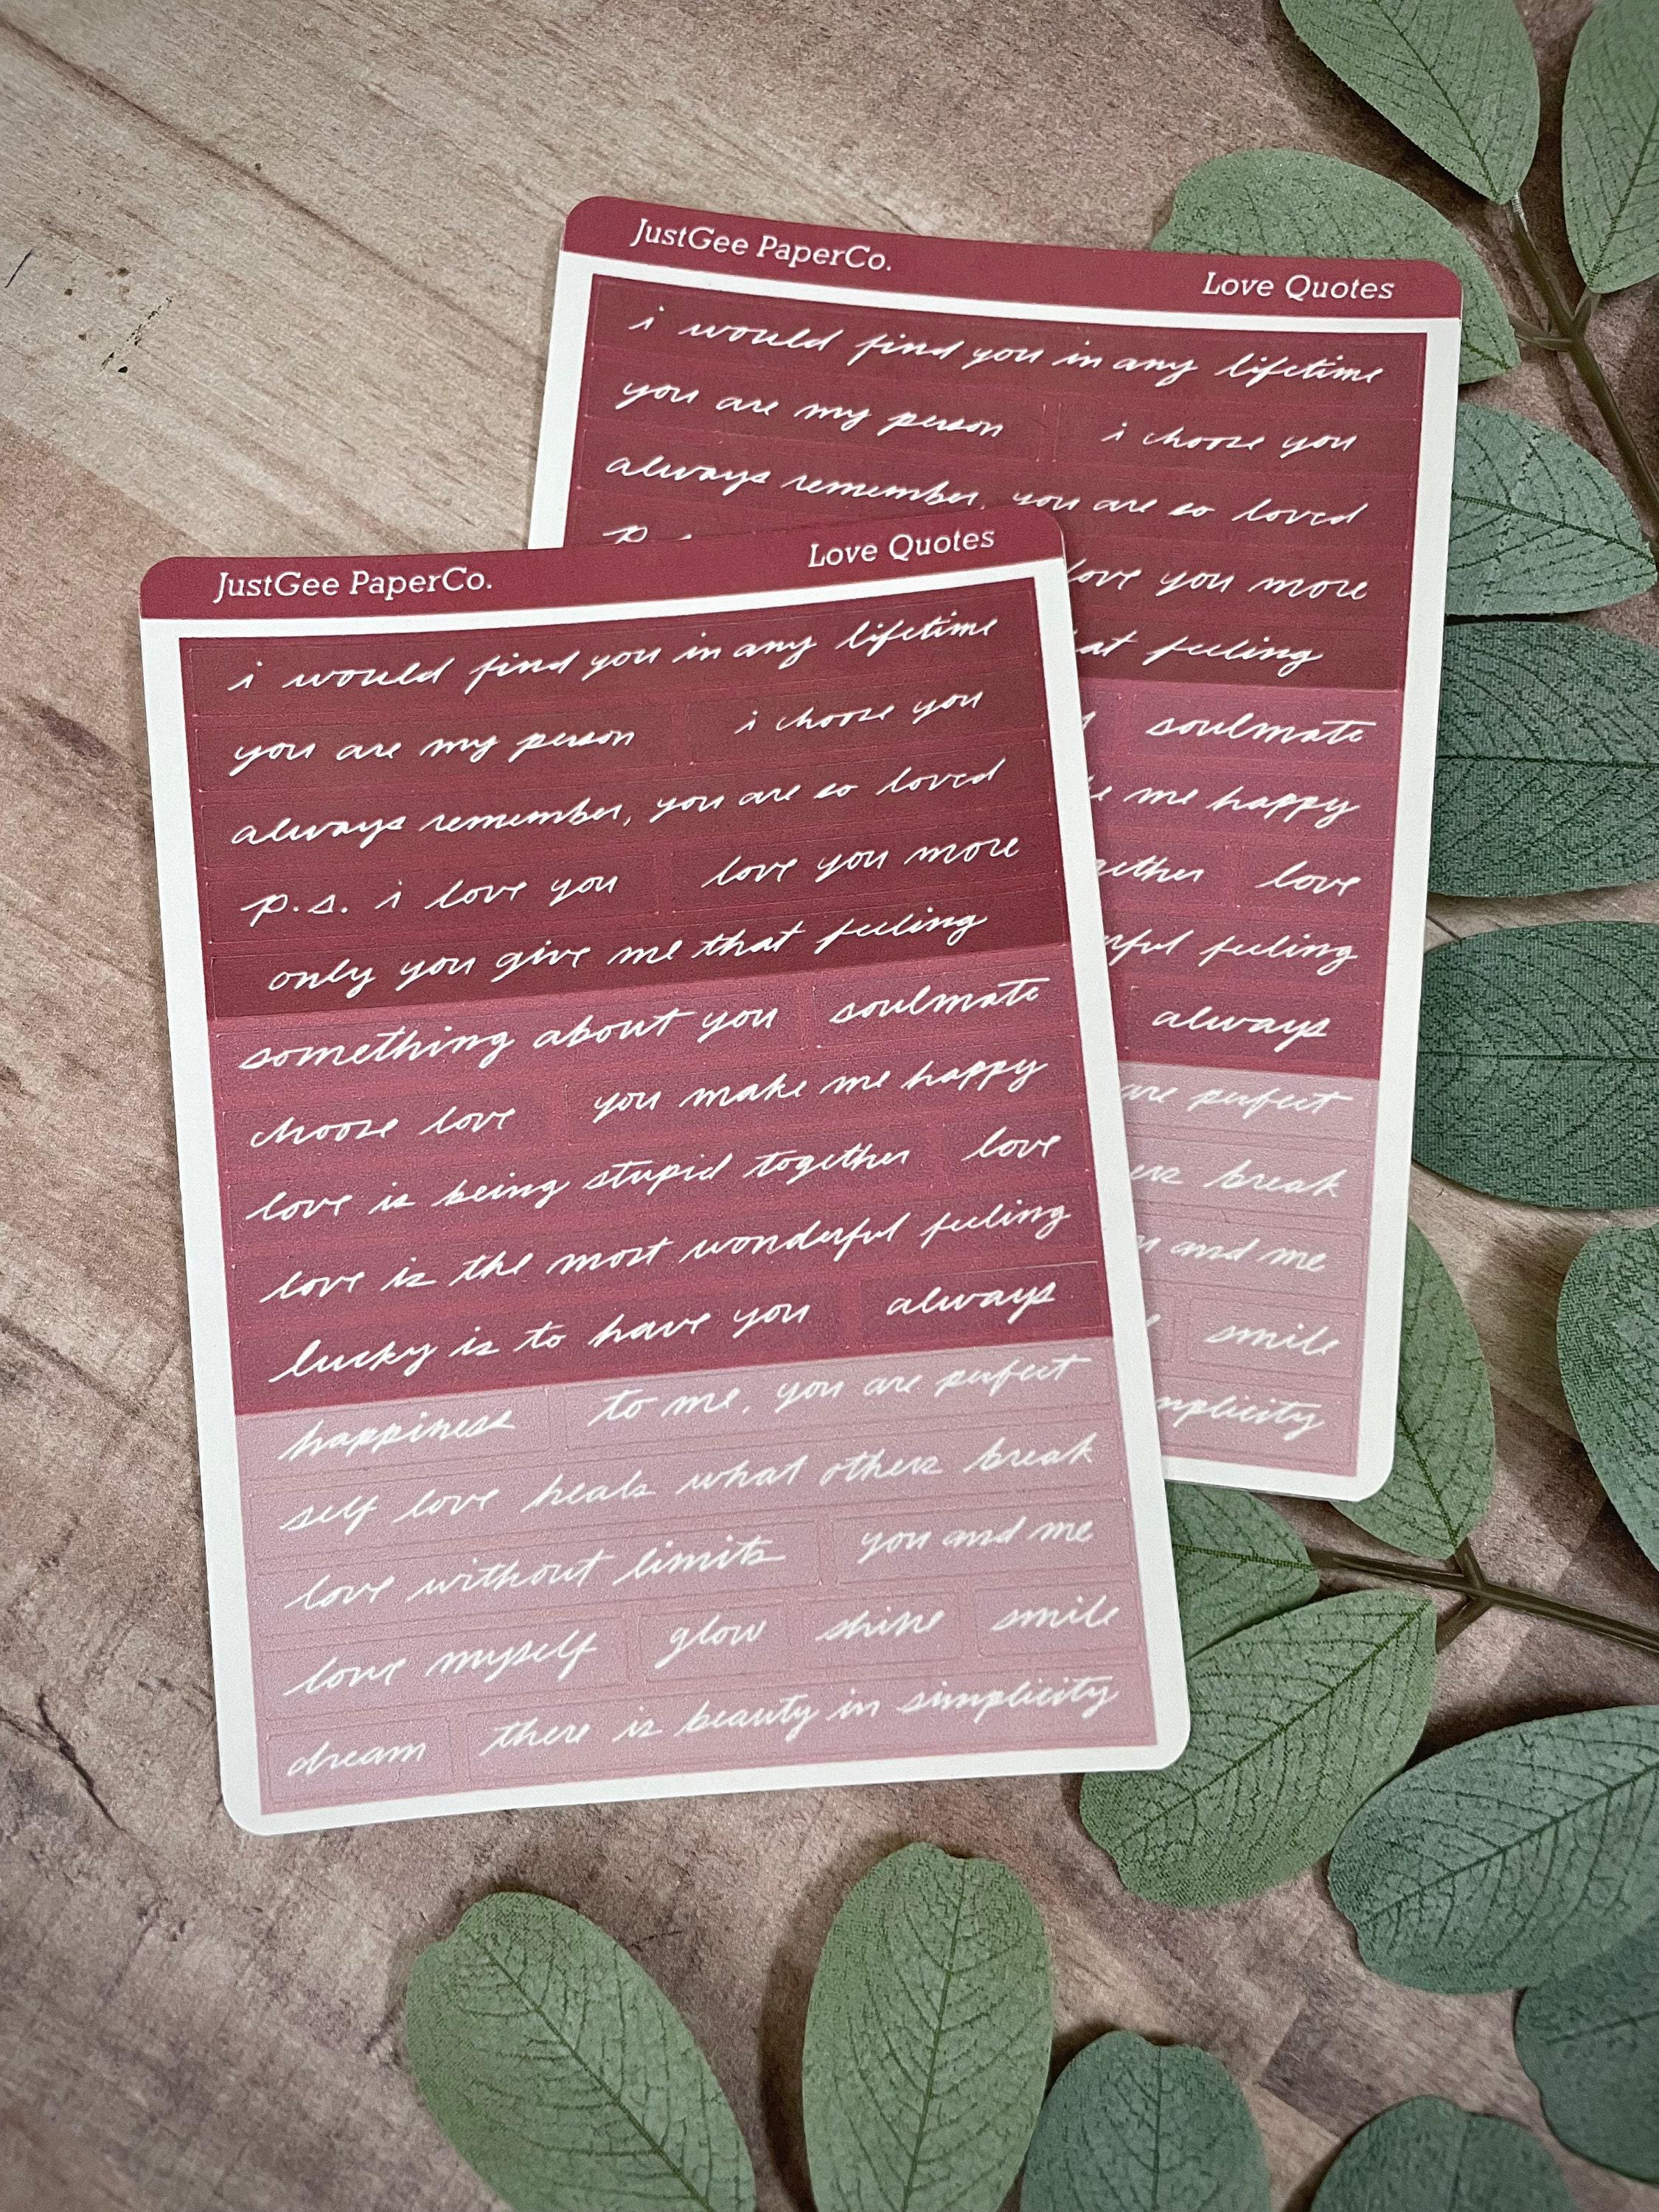 JustGee PaperCo. Love Quotes
i would find you in any lifetime
you are my person i choose you
always remember, you are so loved
love you more
at feeling
soulmate
me happy
gether love
rful feeling
always
are perfect
ers break
and me
smile
mplicity
JustGee PaperCo. Love Quotes
i would find you in any lifetime
you are my person i choose you
always remember, you are so loved
p.s. i love you love you more
only you give me that feeling
something about you soulmate
choose love you make me happy
love is being stupid together love
love is the most wonderful feeling
lucky is to have you always
happiness to me, you are perfect
self love heals what others break
love without limits you and me
love myself glow shine smile
dream there is beauty in simplicity